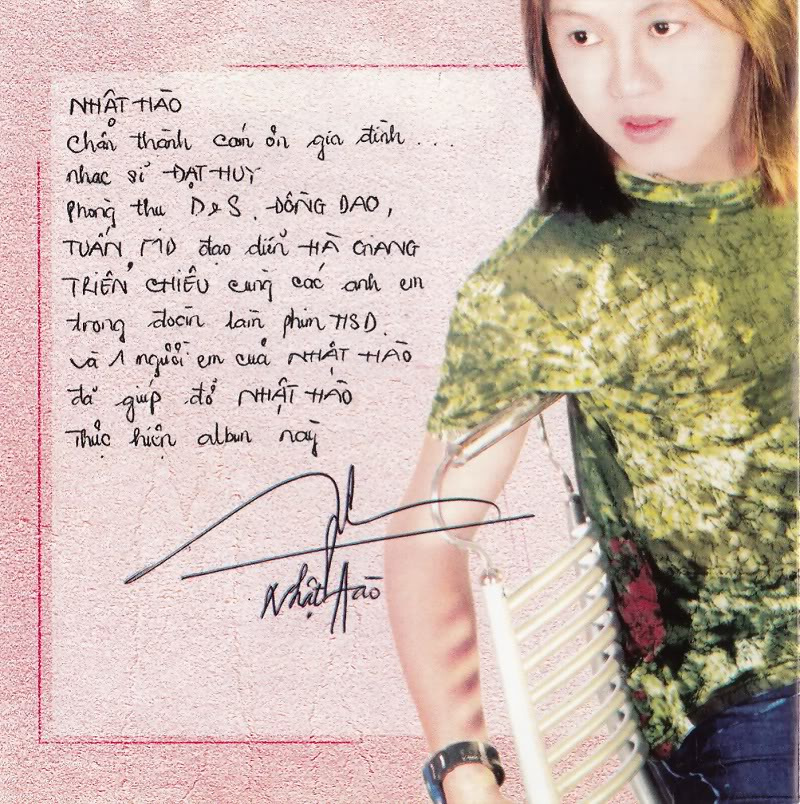 NHẬT HÀO
Chân thành cám ơn gia đình ...
nhạc sĩ ĐẠT HUY
Phòng thu D&S, ĐỒNG DAO,
TUẤN MD đạo diễn HÀ GIANG
TRIỂN CHIÊU cùng các anh em
trong đoàn làm phim HSD.
và 1 người em của NHẬT HÀO
đã giúp đỡ NHẬT HÀO
Thực hiện album này
Nhật Hào